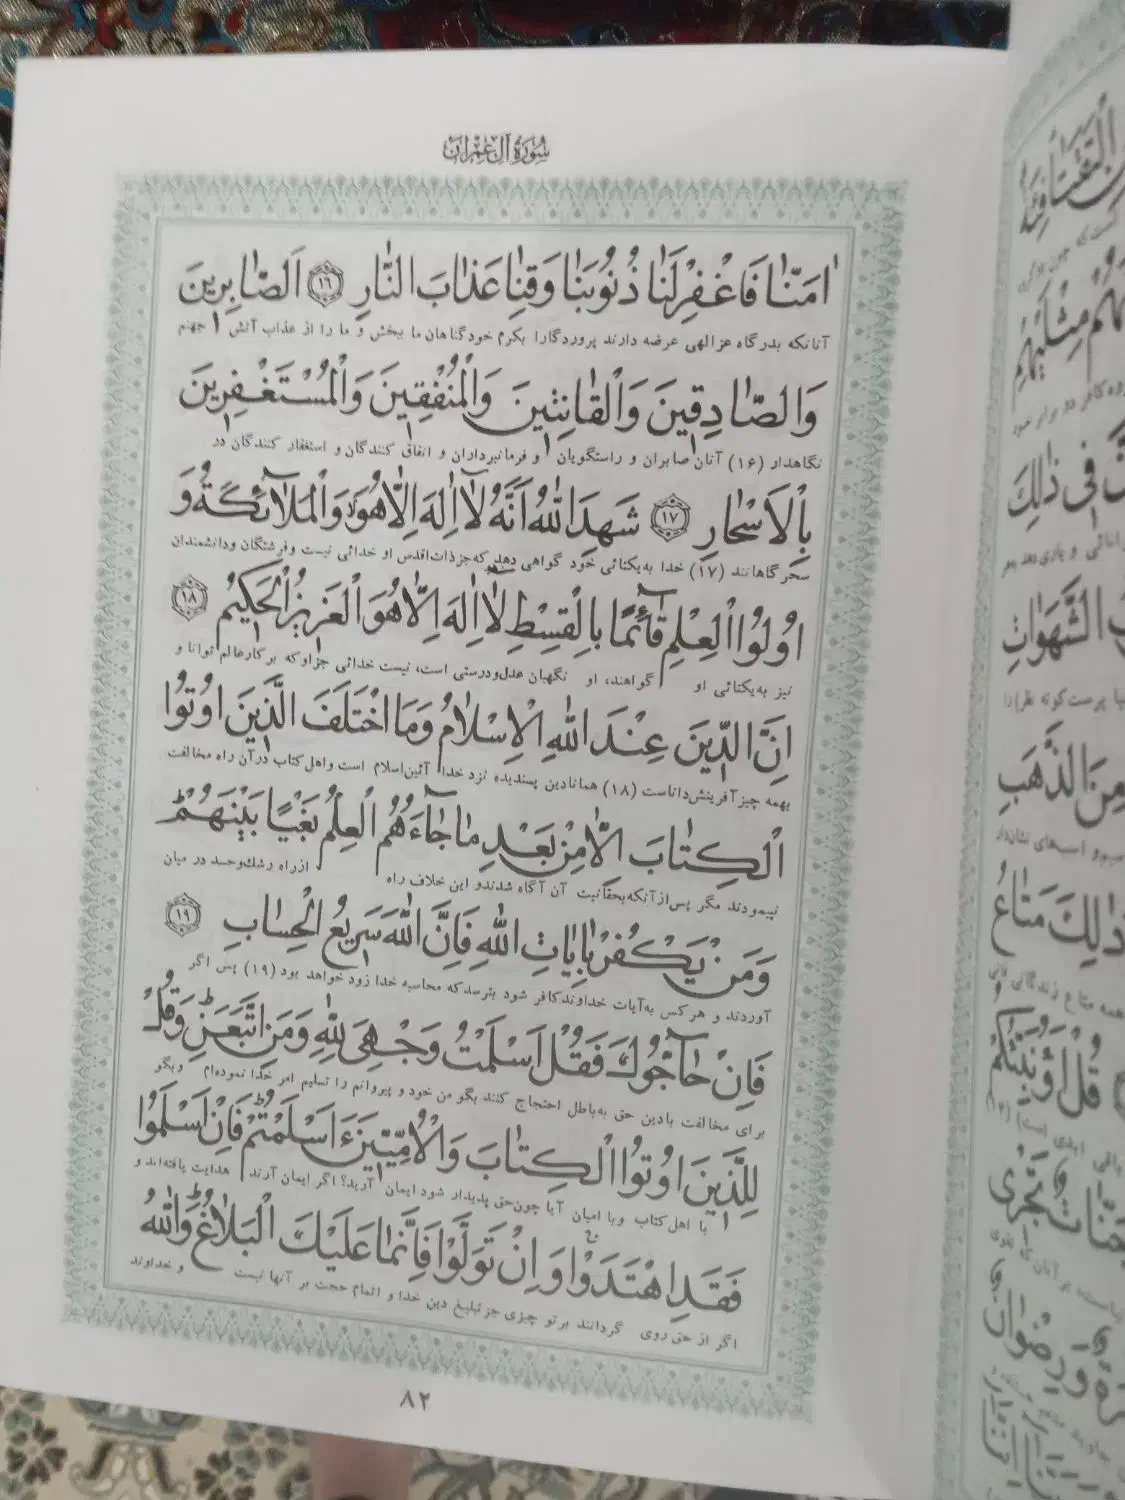 سُورَةُ آلِ عِمْرانَ
اٰمَنّٰا فَاغْفِرْ لَنٰا ذُنُوبَنٰا وَقِنٰا عَذٰابَ النّٰارِ ۱۶ اَلصّٰابِرِينَ
آنانکه بدرگاه عزالهی عرضه دارند پروردگارا بکرم خود گناهان ما ببخش و ما را از عذاب آتش جهنم
وَالصّٰادِقِينَ وَالْقٰانِتِينَ وَالْمُنْفِقِينَ وَالْمُسْتَغْفِرِينَ
نگاهدار (۱۶) آنان صابران و راستگویان و فرمانبرداران و انفاق کنندگان و استغفار کنندگان در
بِالْاَسْحٰارِ ۱۷ شَهِدَ اللّٰهُ اَنَّهُ لٰا اِلٰهَ اِلّٰا هُوَ وَالْمَلٰائِكَةُ وَ
سحرگاهانند (۱۷) خدا به یکتائی خود گواهی دهد که جز ذات اقدس او خدائی نیست و فرشتگان و دانشمندان
اُولُوا الْعِلْمِ قٰائِمًا بِالْقِسْطِ لٰا اِلٰهَ اِلّٰا هُوَ الْعَزِيزُ الْحَكِيمُ ۱۸
نیز به یکتائی او گواهند، او نگهبان عدل و درستی است، نیست خدائی جز او که بر کار عالم توانا و
اِنَّ الدِّينَ عِنْدَ اللّٰهِ الْاِسْلٰامُ وَمَا اخْتَلَفَ الَّذِينَ اُوتُوا
بهمه چیز آفرینش داناست (۱۸) همانا دین پسندیده نزد خدا آئین اسلام است و اهل کتاب در آن راه مخالفت
الْكِتٰابَ اِلّٰا مِنْ بَعْدِ مٰا جٰاءَهُمُ الْعِلْمُ بَغْيًا بَيْنَهُمْ
نپیمودند مگر پس از آنکه بحقانیت آن آگاه شدند و این خلاف راه از راه رشک و حسد در میان
وَمَنْ يَكْفُرْ بِاٰيٰاتِ اللّٰهِ فَاِنَّ اللّٰهَ سَرِيعُ الْحِسٰابِ ۱۹
آوردند و هر کس به آیات خداوند کافر شود بترسد که محاسبه خدا زود خواهد بود (۱۹) پس اگر
فَاِنْ حٰاجُّوكَ فَقُلْ اَسْلَمْتُ وَجْهِيَ لِلّٰهِ وَمَنِ اتَّبَعَنِ وَقُلْ
برای مخالفت با دین حق به باطل احتجاج کنند بگو من خود و پیروانم را تسلیم امر خدا نموده‌ام و بگو
لِلَّذِينَ اُوتُوا الْكِتٰابَ وَالْاُمِّيّٖنَ ءَاَسْلَمْتُمْ فَاِنْ اَسْلَمُوا
با اهل کتاب و با امیان آیا چون حق پدیدار شود ایمان آرید؟ اگر ایمان آرند هدایت یافته‌اند و
فَقَدِ اهْتَدَوْا وَاِنْ تَوَلَّوْا فَاِنَّمٰا عَلَيْكَ الْبَلٰاغُ وَاللّٰهُ
اگر از حق روی گردانند بر تو چیزی جز تبلیغ دین خدا و اتمام حجت بر آنها نیست و خداوند
۸۲
مِثْلَيْهِمْ
فِي ذٰلِكَ
الشَّهَوٰاتِ
مِنَ الذَّهَبِ
ذٰلِكَ مَتٰاعُ
قُلْ اَؤُنَبِّئُكُمْ
تَجْرِي
وَرِضْوٰانٌ